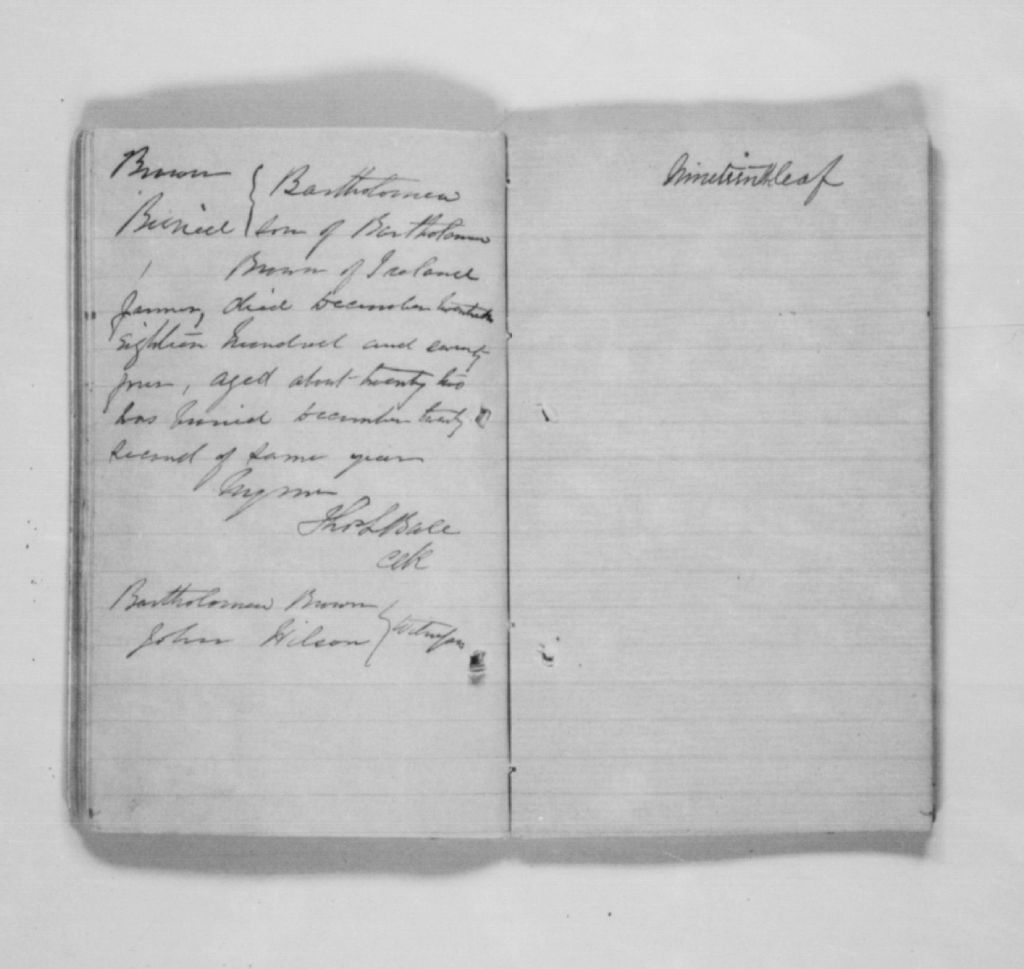 Brown { Bartholomew
Buried { son of Bartholomew
Brown of Ireland
farmer, died December twentieth
Eighteen hundred and seventy
four, aged about twenty two
was buried December twenty
second of same year
By me
Thos L Ball
Bartholomew Brown }
John Wilson } Witnesses
Nineteenth leaf